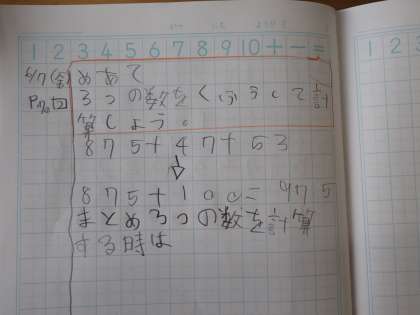 1 2 3 4 5 6 7 8 9 10 + − =
1 2 3
6/7(金) めあて
3つの数をくふうして計
算しよう。
875+47+53
875+100=975
まとめ3つの数を計算
する時は